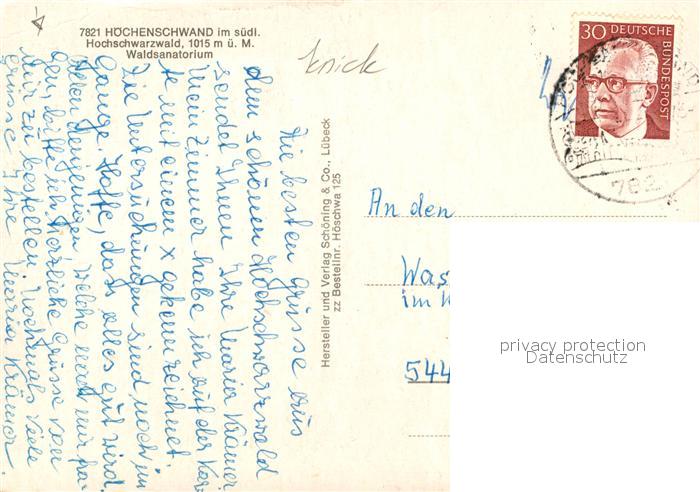 7821 HÖCHENSCHWAND im südl.
Hochschwarzwald, 1015 m ü. M.
Waldsanatorium
knick
30 DEUTSCHE
BUNDESPOST
782
Die besten Grüsse aus
dem schönen Hochschwarzwald
sendet Ihnen Ihre Maria Krämer
Mein Zimmer habe ich auf der Kar-
te mit einem x gekennzeichnet
Die Untersuchungen sind noch im
Gange. Hoffe, dass alles gut wird.
welche nach mir
bitte ich herzliche Grüsse von
mir zu bestellen Nochmals viele
Grüsse Ihre Maria Krämer.
Hersteller und Verlag Schöning & Co., Lübeck
zz Bestellnr. Höschwa 125
An den
Was
im
544
privacy protection
Datenschutz